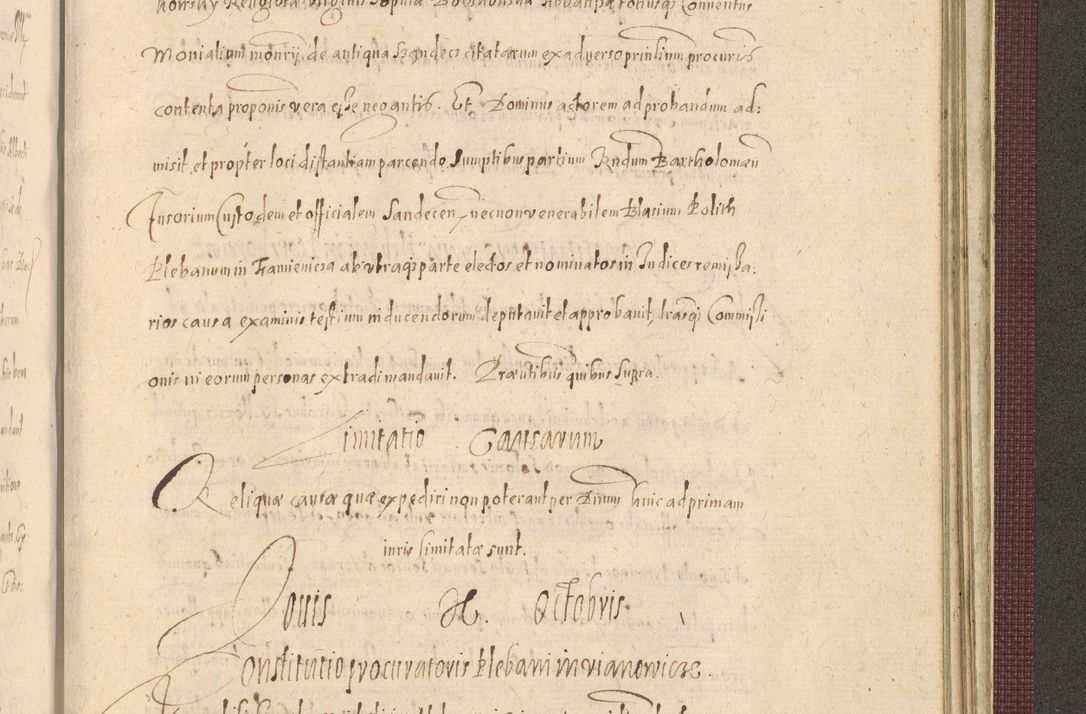 Religiosa
Monialium montrÿ de antiqua Szandecz citatarum ex adverso prinlium procuris
contenta proponis vera esse negantis. Et Dominus actorem ad probandum ad:
misit, et propter loci distantiam parcendo sumptibus partium Rndum Bartholomæū
Custodem et officialem Sandecen, necnon venerabilem Blasium Polith
Plebanum in Kamienicza ab utraq; parte electos et nominatos in Judices remissa:
rios causa examinis testium inducendorum deputavit et approbavit, Commissi
onis in eorum personas extradi mandavit. Præntibus quibus supra.
Limitatio Causarum
Reliquæ causæ quæ expediri non poterant per Dnum hinc ad primam
iuris limitatæ sunt.
Jovis X. Octobris.
Constitutio procuratoris Plebani in